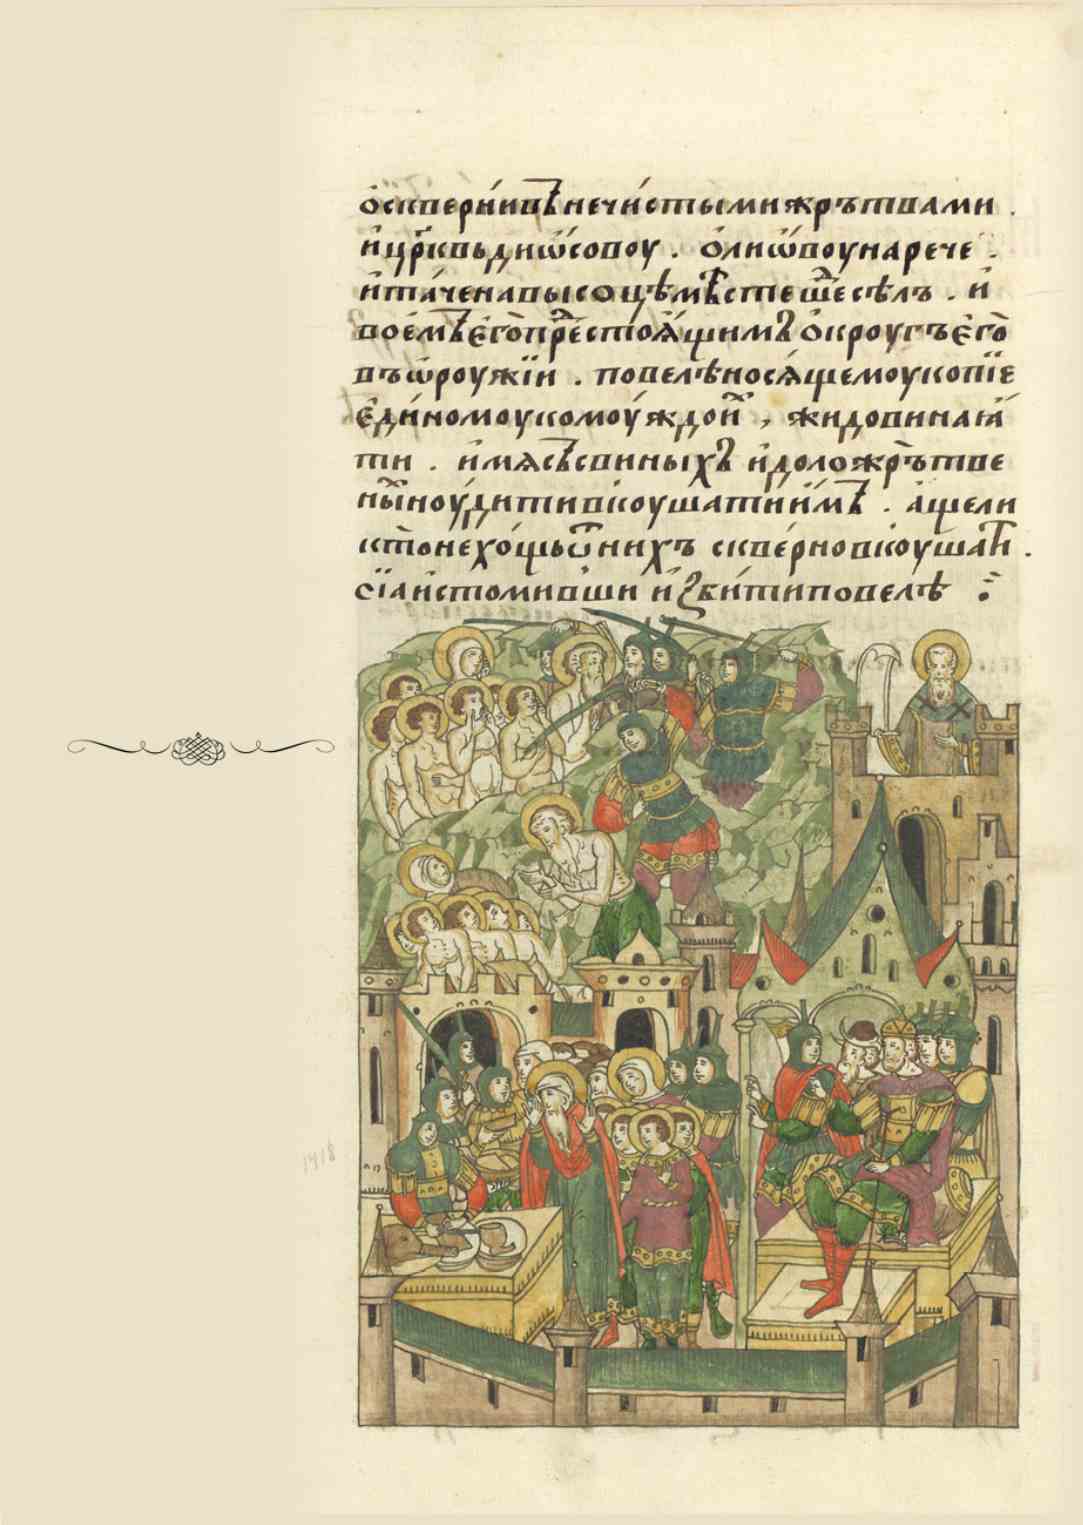 ѻсквернивънечистымижрътвами .
ицр҃ковьдиѡсовоу . ѻлиѡвоунарече .
итаченавысоцѣмѣстешесѣдъ . и
воемъегопрестоѧщимъѻкроугъего
въѡроужїи . повелѣносѧщемоукопїе
единомоукомоуждои , жидовинаꙗ
ти . имѧсъсвиныхъ идоложрътве
ныноудитивкоушатиимъ . ащели
ктонехощьѿнихъ сквѣрновкоушати .
сїаистомивши иꙁбитиповелѣ :
1418